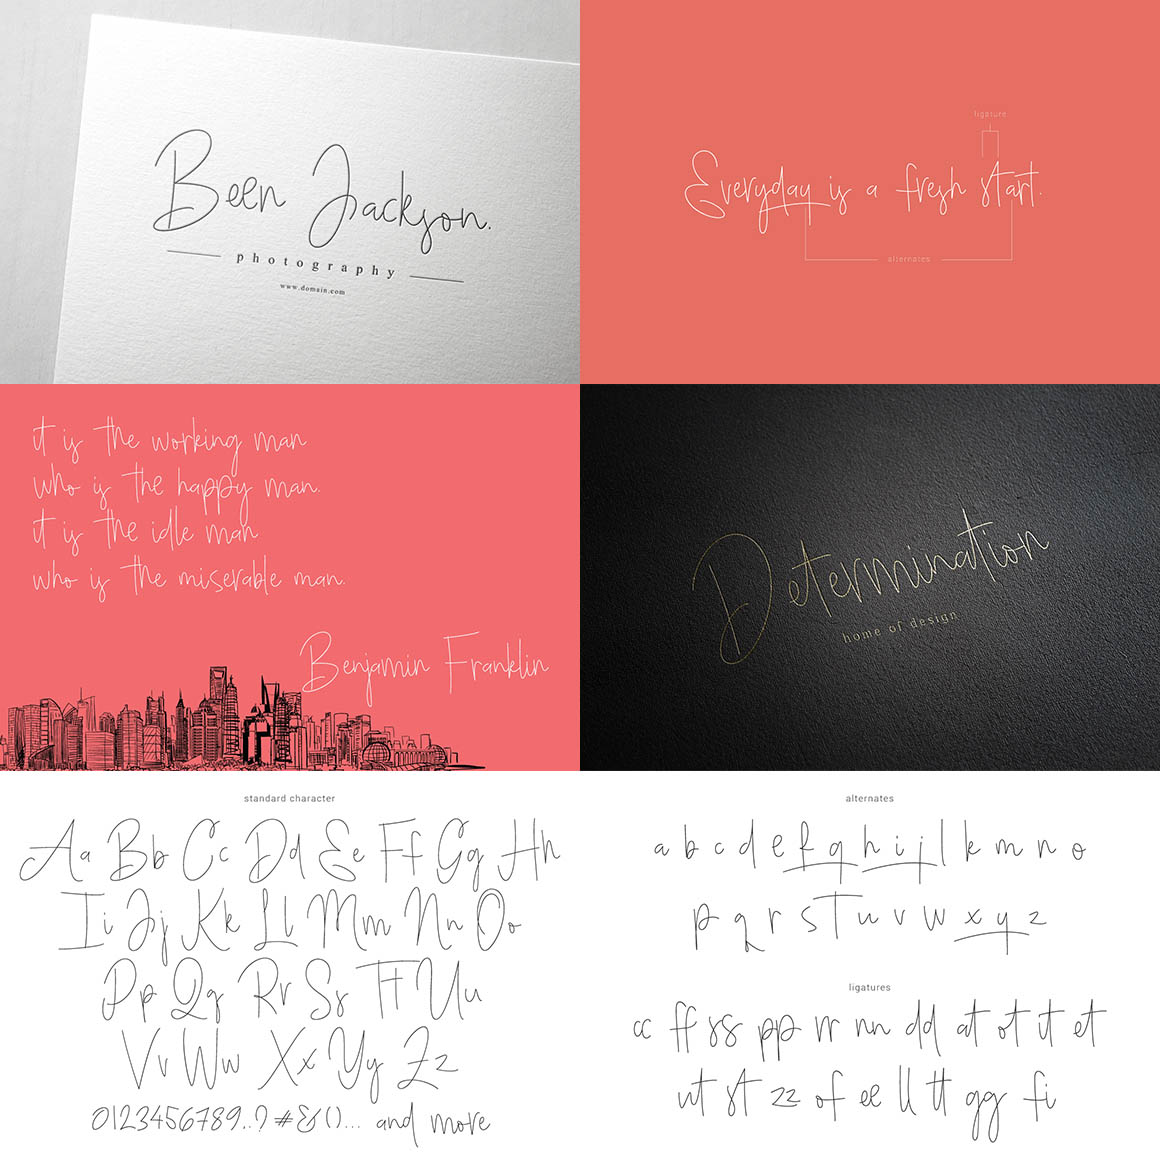 Been Jackson.
photography
www.domain.com
ligature
Everyday is a fresh start.
alternates
it is the working man
who is the happy man.
it is the idle man
who is the miserable man.
Benjamin Franklin
Determination
home of design
standard character
Aa Bb Cc Dd Ee Ff Gg Hh
Ii Jj Kk Ll Mm Nn Oo
Pp Qq Rr Ss Tt Uu
Vv Ww Xx Yy Zz
0123456789..? #&()... and more
alternates
a b c d e f g h i j l k m n o
p q r s T u v w x y z
ligatures
cc ff ss pp rr nn dd at ot it et
ut st zz of ee ll tt gg fi